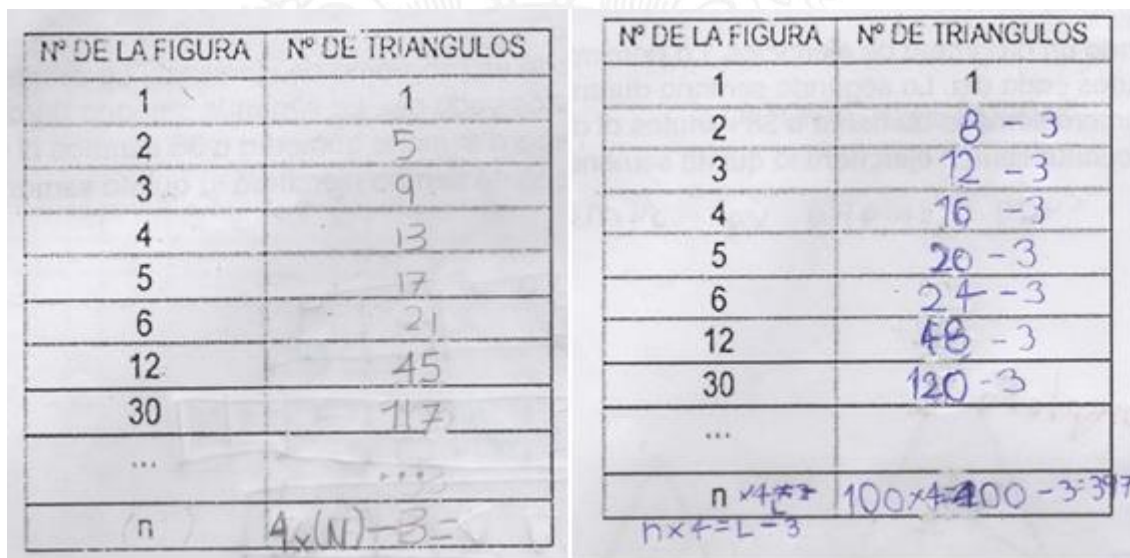 Nº DE LA FIGURA Nº DE TRIANGULOS
1 1
2 5
3 9
4 13
5 17
6 21
12 45
30 117
... ...
n 4x(N)-3=
Nº DE LA FIGURA Nº DE TRIANGULOS
1 1
2 8 3
3 12 -3
4 16 -3
5 20 -3
6 24 -3
12 48 -3
30 120 -3
...
n x4 100x4=400-3=397
nx4=L-3